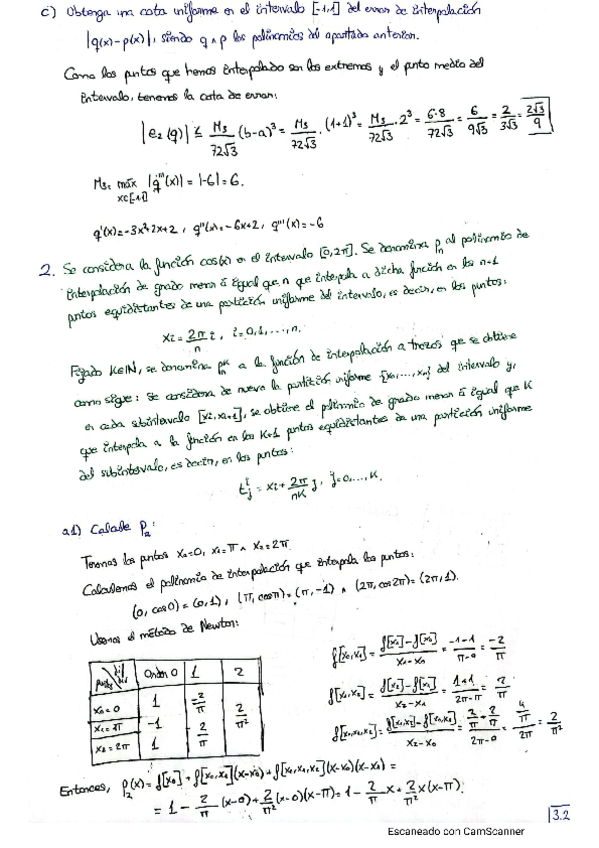 c) Obtenga una cota uniforme en el intervalo [-1,1] del error de interpolación
|q(x)-p(x)|, siendo q y p los polinomios del apartado anterior.
Como los puntos que hemos interpolado son los extremos y el punto medio del
intervalo, tenemos la cota de error:
|e₂(q)| ≤ M₃/72√3 (b-a)³ = M₃/72√3 · (1+1)³ = M₃/72√3 · 2³ = 6·8/72√3 = 6/9√3 = 2/3√3 = 2√3/9
M₃ = máx |q'''(x)| = |-6| = 6.
x∈[-1,1]
q'(x) = -3x²+2x+2, q''(x) = -6x+2, q'''(x) = -6
2. Se considera la función cos(x) en el intervalo [0,2π]. Se denomina pₙ al polinomio de
interpolación de grado menor ó igual que n que interpola a dicha función en los n+1
puntos equidistantes de una partición uniforme del intervalo, es decir, en los puntos:
xᵢ = 2π/n i, i=0,1,...,n.
Fijado K∈ℕ, se denomina pₙᴷ a la función de interpolación a trozos que se obtiene
como sigue: Se considera de nuevo la partición uniforme {x₀,...,xₙ} del intervalo y,
en cada subintervalo [xᵢ,xᵢ₊₁], se obtiene el polinomio de grado menor ó igual que K
que interpola a la función en los K+1 puntos equidistantes de una partición uniforme
del subintervalo, es decir, en los puntos:
tⱼⁱ = xᵢ + 2π/nK j, j=0,...,K.
a1) Calcule P₂:
Tenemos los puntos x₀=0, x₁=π ∧ x₂=2π.
Calculemos el polinomio de interpolación que interpola los puntos:
(0, cos0) = (0,1), (π, cosπ) = (π,-1) ∧ (2π, cos2π) = (2π,1).
Usamos el método de Newton:
Orden 0 1 2
x₀=0 1 -2/π 2/π²
x₁=π -1 2/π
x₂=2π 1
f[x₀,x₁] = f[x₁]-f[x₀]/x₁-x₀ = -1-1/π-0 = -2/π
f[x₁,x₂] = f[x₂]-f[x₁]/x₂-x₁ = 1+1/2π-π = 2/π
f[x₀,x₁,x₂] = f[x₁,x₂]-f[x₀,x₁]/x₂-x₀ = 2/π+2/π/2π-0 = 4/π/2π = 2/π²
Entonces, p₂(x) = f[x₀]+f[x₀,x₁](x-x₀)+f[x₀,x₁,x₂](x-x₀)(x-x₁) =
= 1 - 2/π (x-0) + 2/π² (x-0)(x-π) = 1 - 2/π x + 2/π² x(x-π).
3.2
Escaneado con CamScanner